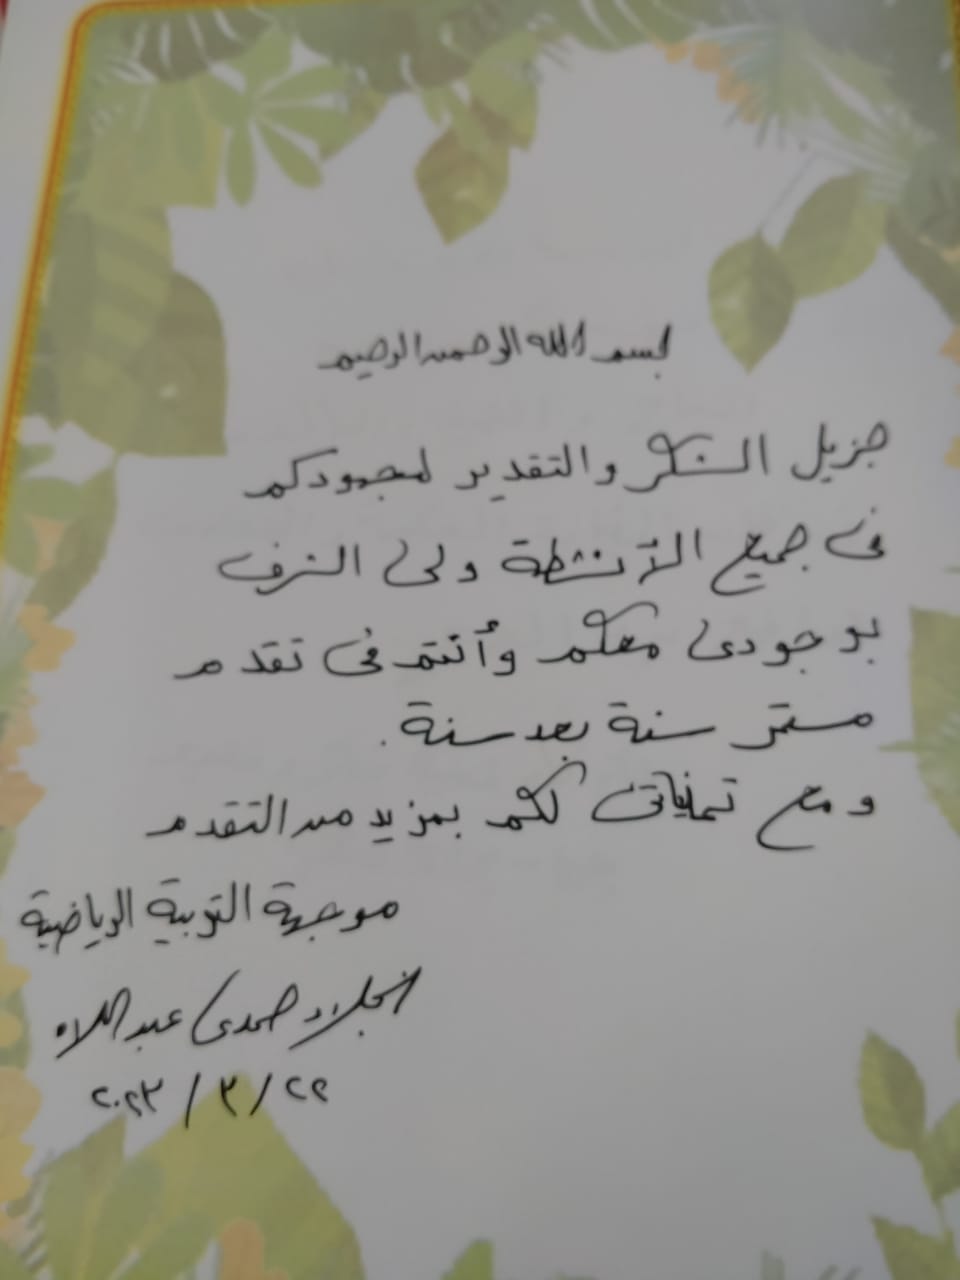 بسم الله الرحمن الرحيم
جزيل الشكر والتقدير لمجهودكم
فى جميع الأنشطة ولى الشرف
بوجودى معكم وأنتم فى تقدم
مستمر سنة بعد سنة.
ومع تمنياتى لكم بمزيد من التقدم
موجهة التربية الرياضية
نجلاء حمدى عبد اللاه
٢٩ / ٣ / ٢٠٢٣